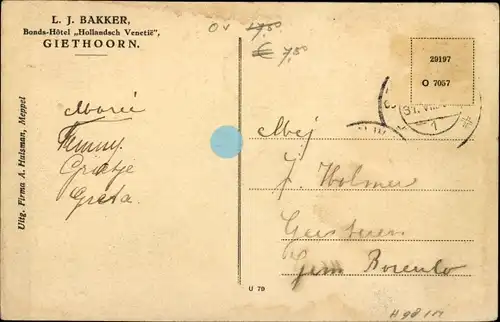 L. J. BAKKER,
Bonds-Hôtel „Hollandsch Venetië",
GIETHOORN.
Uitg. Firma A. Huisman, Meppel
Marie
Fenny.
Grietje
Greta.
U 79
Ov 17,50
€ 7,50
29197
O 7057
31. VII.
1
Mej
J. Wolmer
Geesteren
Gem Borculo